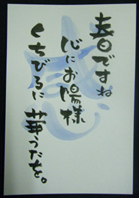 春ですね
心にお陽様
くちびるに
華うたを。